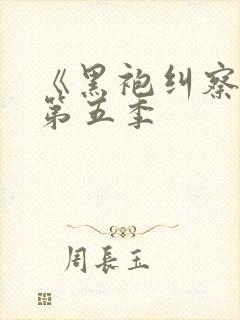 《黑袍纠察
第五季
周長玉